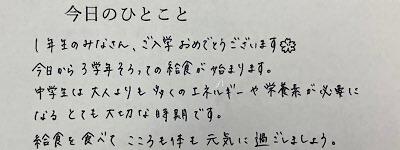 今日のひとこと
1年生のみなさん、ご入学おめでとうございます🌸
今日から3学年そろっての給食が始まります。
中学生は大人よりも多くのエネルギーや栄養素が必要に
なるとても大切な時期です。
給食を食べてこころも体も元気に過ごしましょう。